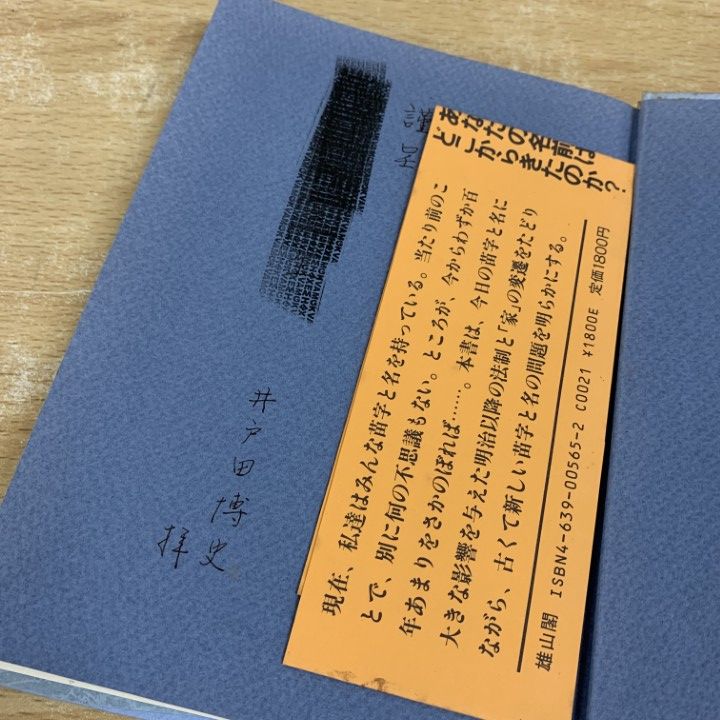 あなたの名前は
どこからきたのか?
現在、私達はみんな苗字と名を持っている。当たり前のこ
とで、別に何の不思議もない。ところが、今からわずか百
年あまりをさかのぼれば……。本書は、今日の苗字と名に
大きな影響を与えた明治以降の法制と「家」の変遷をたどり
ながら、古くて新しい苗字と名の問題を明らかにする。
雄山閣 ISBN4-639-00565-2 C0021 ¥1800E 定価1800円
井戸田博史
拝